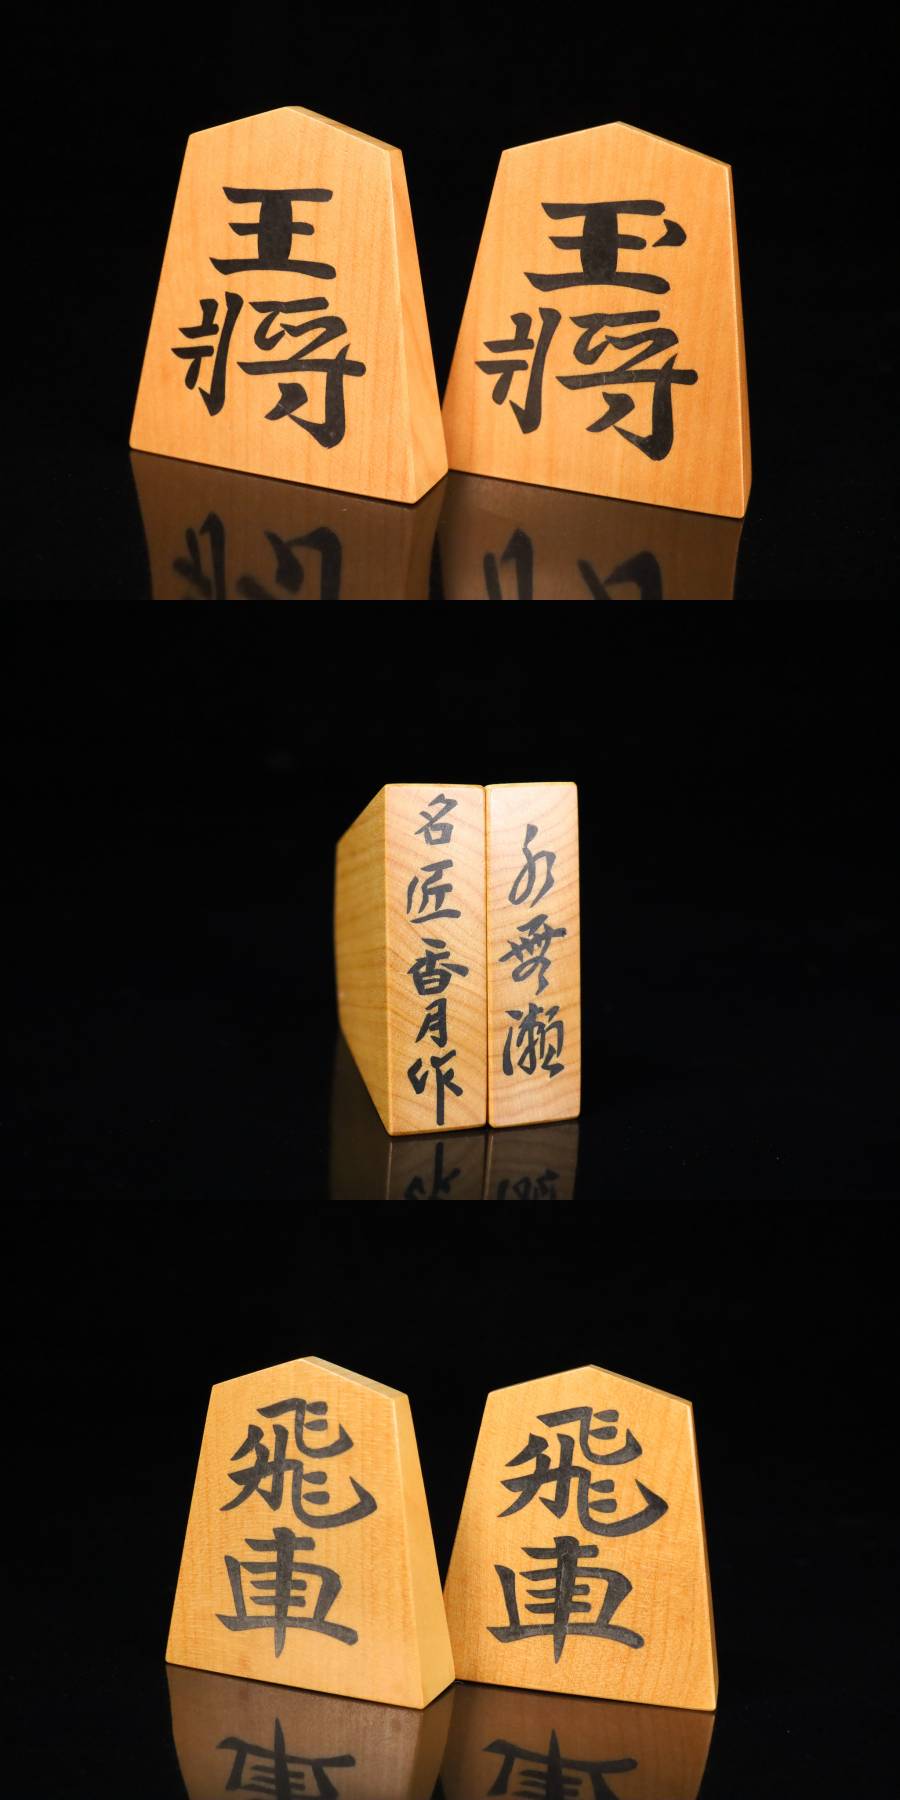 王將
玉將
名匠香月作
水無瀬
飛車
飛車